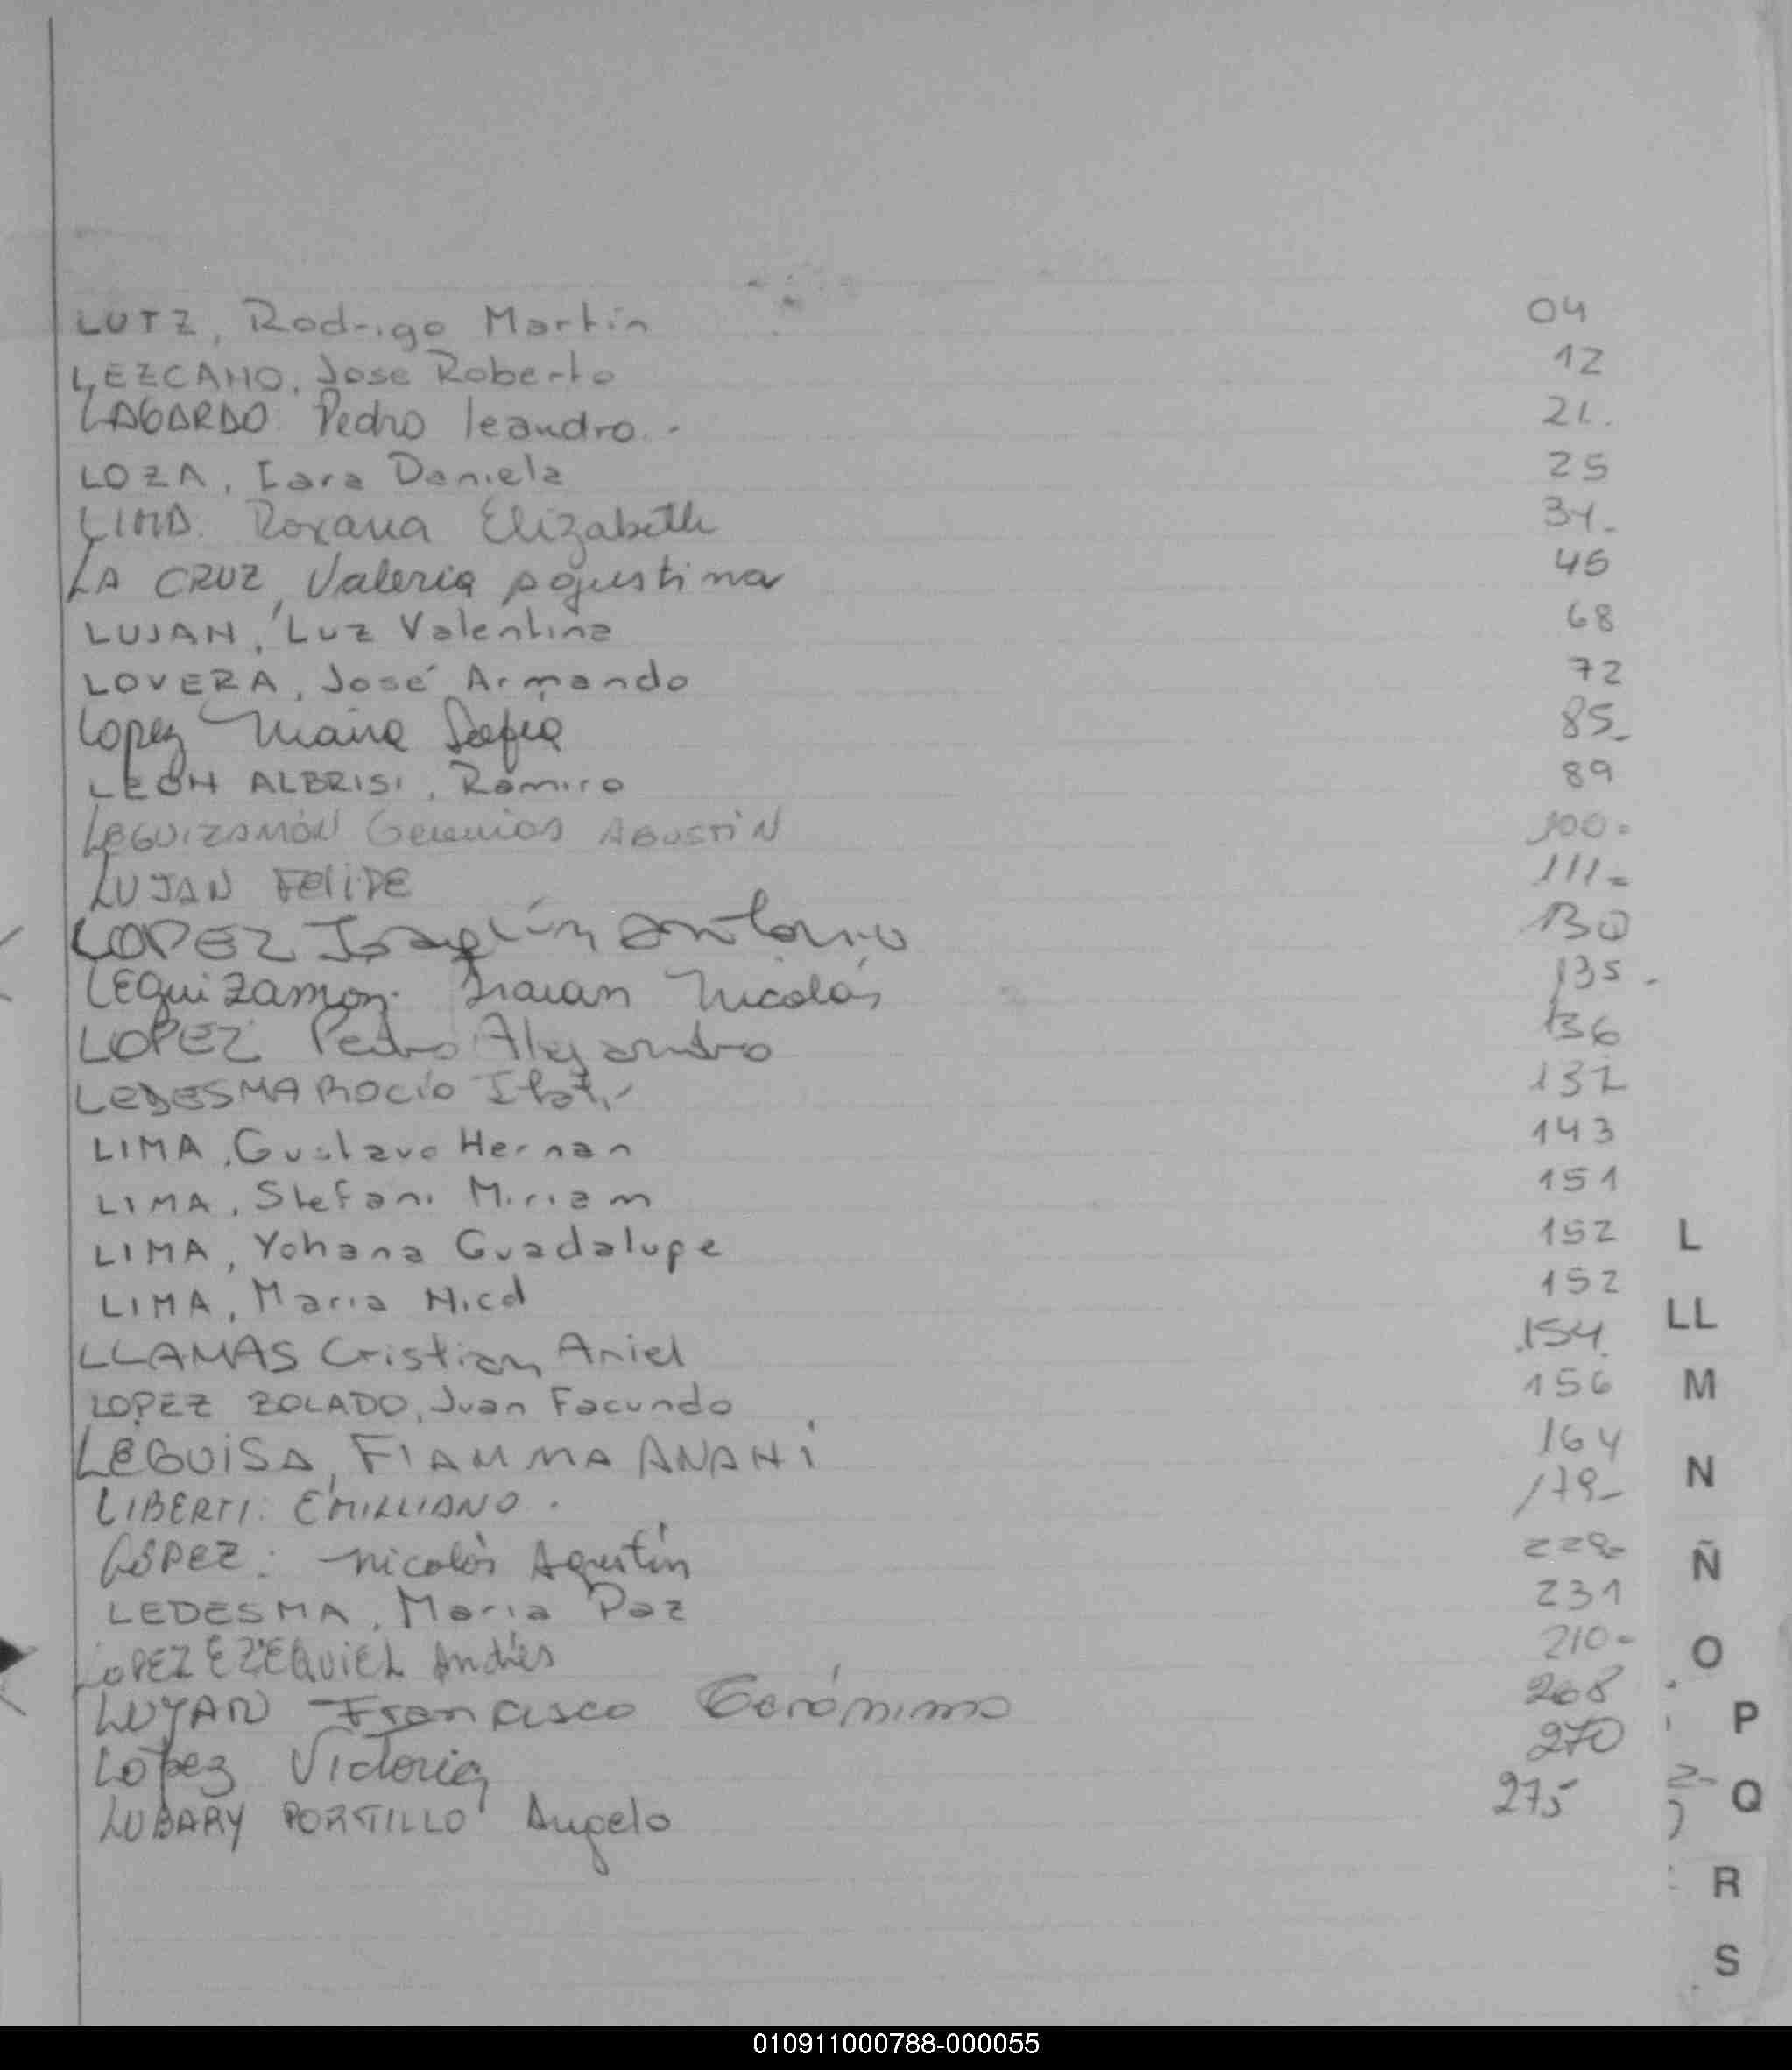 LUTZ, Rodrigo Martin 04
LEZCANO, Jose Roberto 12
LAGARDO Pedro leandro.- 21.
LOZA, Iara Daniela 25
LIMA. Roxana Elizabeth 31-
LA CRUZ, Valeria Agustina 45
LUJAN, Luz Valentina 68
LOVERA, José Armando 72
Lopez Maira Sofia 85-
LEON ALBRISI, Ramiro 89
LEGUIZAMÓN Geremias AGUSTIN 100-
LUJAN FELIPE 111-
LOPEZ Joaquín Antonio 130
LEguizamon. Nicolás 135-
LOPEZ Pedro Alejandro 136
LEDESMA ROCÍO Itatí 137
LIMA, Gustavo Hernan 143
LIMA, Stefani Miriam 151
LIMA, Yohana Guadalupe 152
LIMA, Maria Nicol 152
LLAMAS Cristian Ariel 154
LOPEZ ZOLADO, Juan Facundo 156
LEGUISA, FIAMMA ANAHí 164
LIBERTI: EMILIANO. 178-
LÓPEZ: Nicolás Agustín 229-
LEDESMA, Maria Paz 231
LOPEZ EZEQUIEL Andrés 210-
LUJAN Francisco Gerónimo 268
López Victoria 270
LUBARY PORTILLO Angelo 275
L
LL
M
N
Ñ
O
P
Q
R
S
010911000788-000055